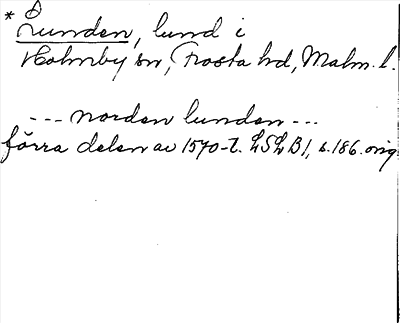 * Lunden, lund i
Holmby sn, Frosta hd, Malm. l.
--- norden lunden ---
förra delen av 1570-t. LSLB1, s.186. orig